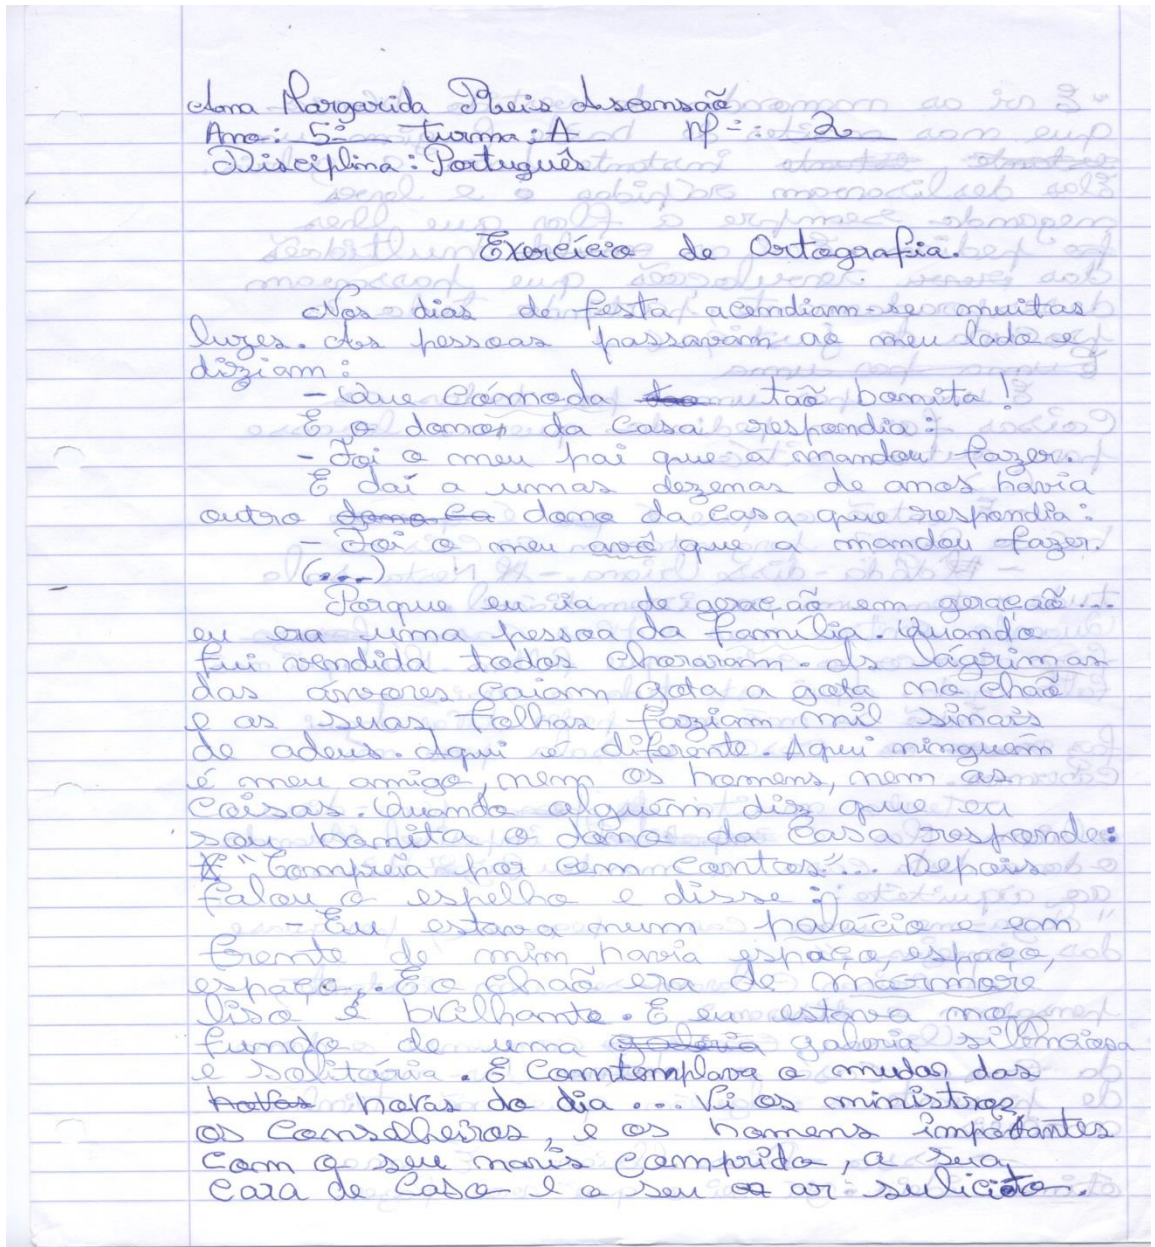 Ana Margarida Reis Ascensão
Ano: 5º turma: A nº=: 2
Disciplina: Português
Exercício de Ortografia.
Nos dias de festa acendiam-se muitas
luzes. As pessoas passavam ao meu lado e
diziam:
- Que cómoda tão bonita!
E o dono da casa respondia:
- Foi o meu pai que a mandou fazer.
E daí a umas dezenas de anos havia
outro dono da casa que respondia:
- Foi o meu avô que a mandou fazer.
(...)
Porque eu ia de geração em geração...
eu era uma pessoa da família. Quando
fui vendida todos choraram. As lágrimas
das árvores caiam gota a gota no chão
e as suas folhas faziam mil sinais
de adeus. Aqui é diferente. Aqui ninguém
é meu amigo, nem os homens, nem as
coisas. Quando alguém diz que eu
sou bonita o dono da casa responde:
"Compreia por cem contos"... Depois
falou o espelho e disse:
- Eu estava num palácio e em
frente de mim havia espaço, espaço,
espaço,. E o chão era de mármore
liso e brilhante. E eu estava no
fundo de uma galeria silênciosa
e solitária. E comtemplava o mudar das
horas do dia... Vi os ministros,
os conselheiros, e os homens importantes
com o seu naris comprido, a sua
cara de caso e o seu ar sulicito.